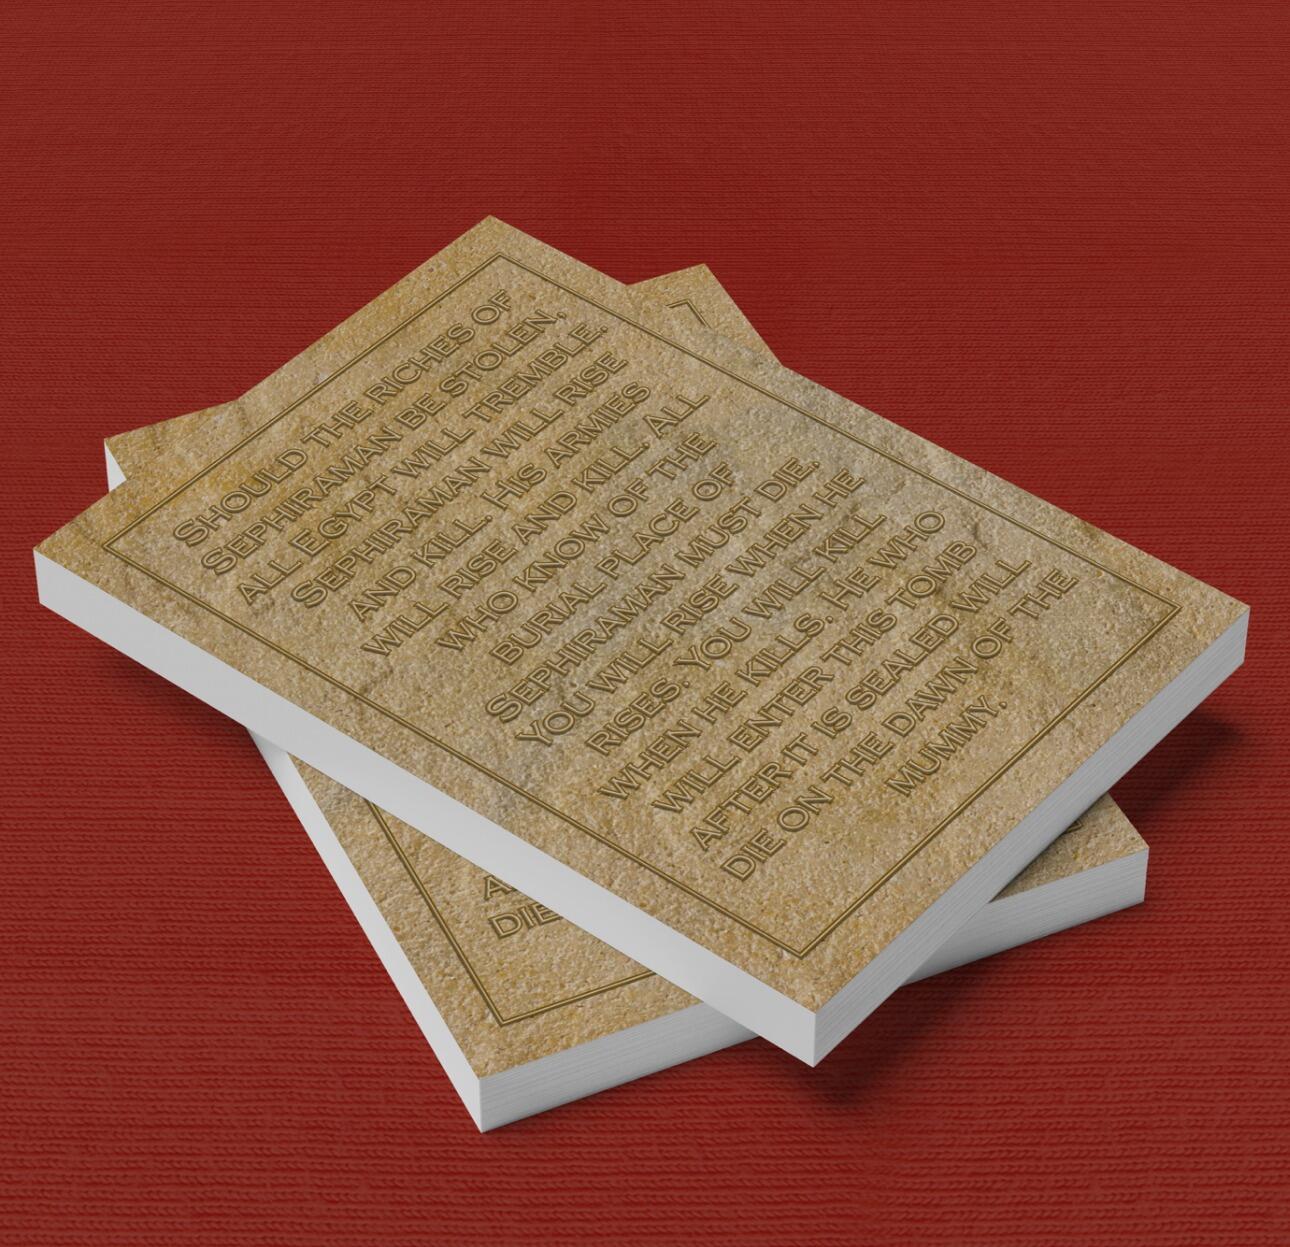 SHOULD THE RICHES OF
SEPHIRAMAN BE STOLEN,
ALL EGYPT WILL TREMBLE.
SEPHIRAMAN WILL RISE
AND KILL. HIS ARMIES
WILL RISE AND KILL. ALL
WHO KNOW OF THE
BURIAL PLACE OF
SEPHIRAMAN MUST DIE.
YOU WILL RISE WHEN HE
RISES. YOU WILL KILL
WHEN HE KILLS. HE WHO
WILL ENTER THIS TOMB
AFTER IT IS SEALED WILL
DIE ON THE DAWN OF THE
MUMMY.
DIE